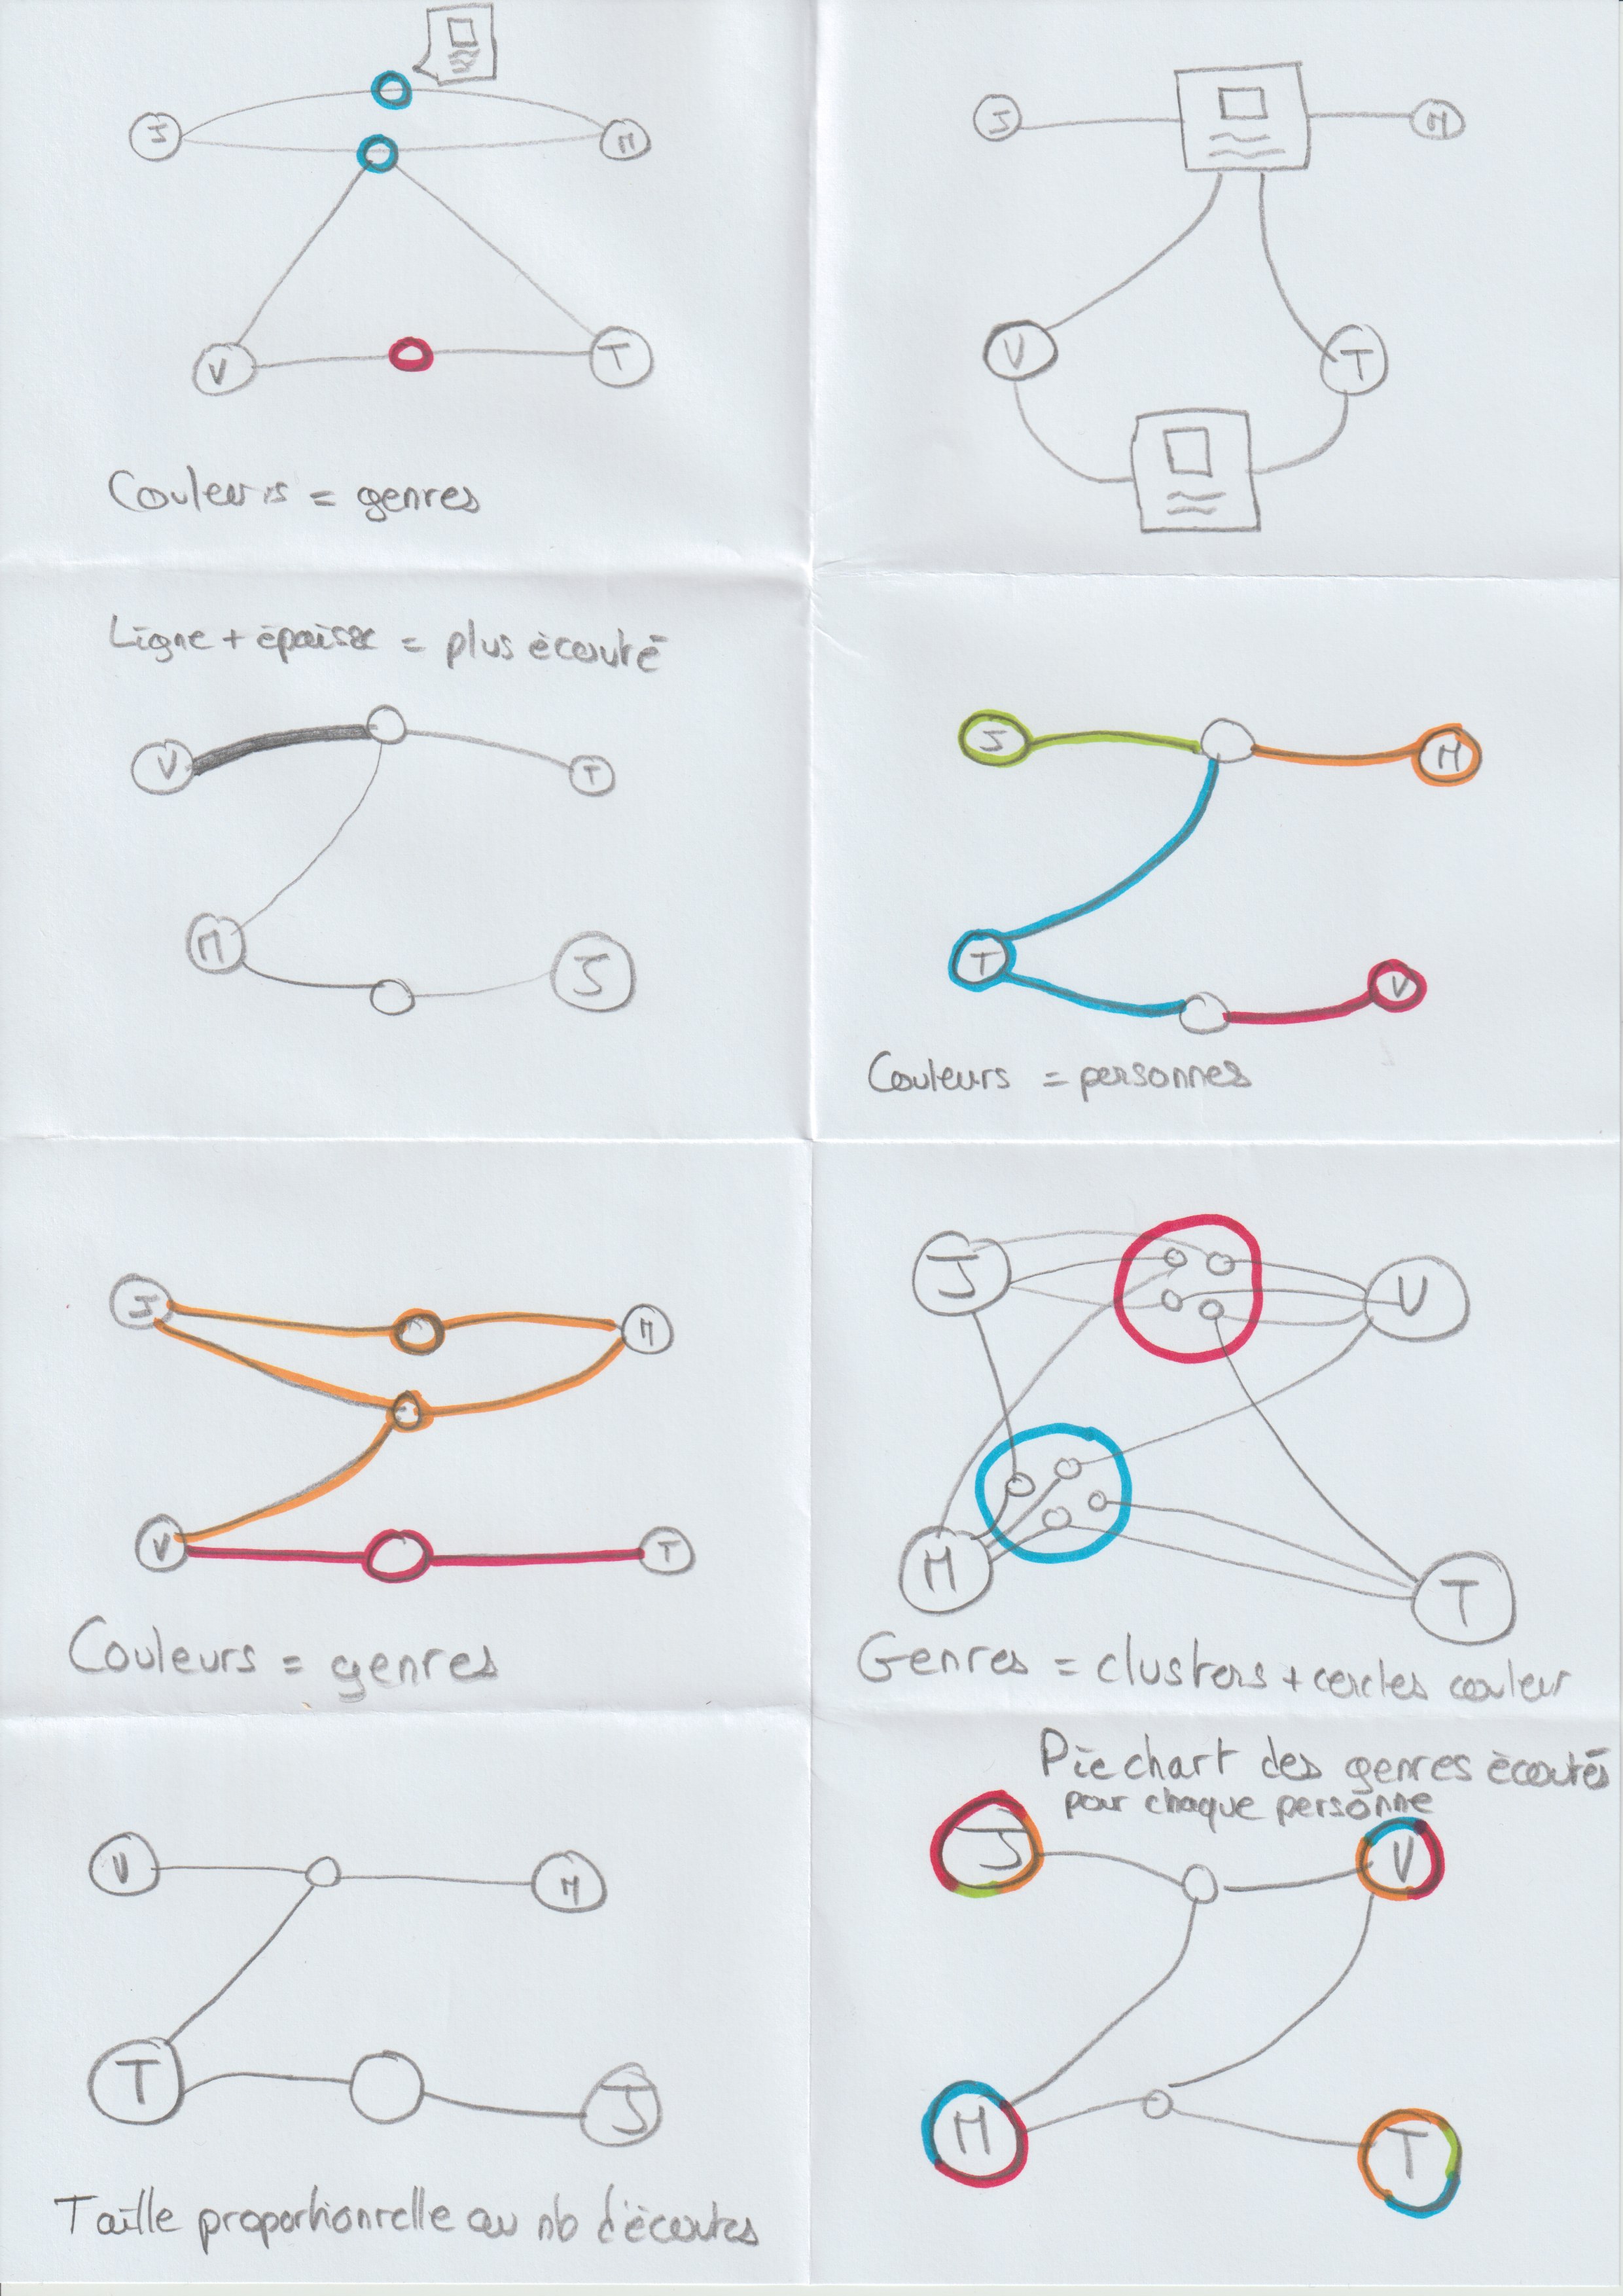 J
M
V
T
Couleurs = genres
J
M
V
T
Ligne + épaisse = plus écouté
V
T
M
J
J
M
T
V
Couleurs = personnes
J
M
V
T
Couleurs = genres
J
V
M
T
Genres = clusters + cercles couleur
V
M
T
J
Taille proportionnelle au nb d'écoutes
Pie chart des genres écoutés
pour chaque personne
J
V
M
T